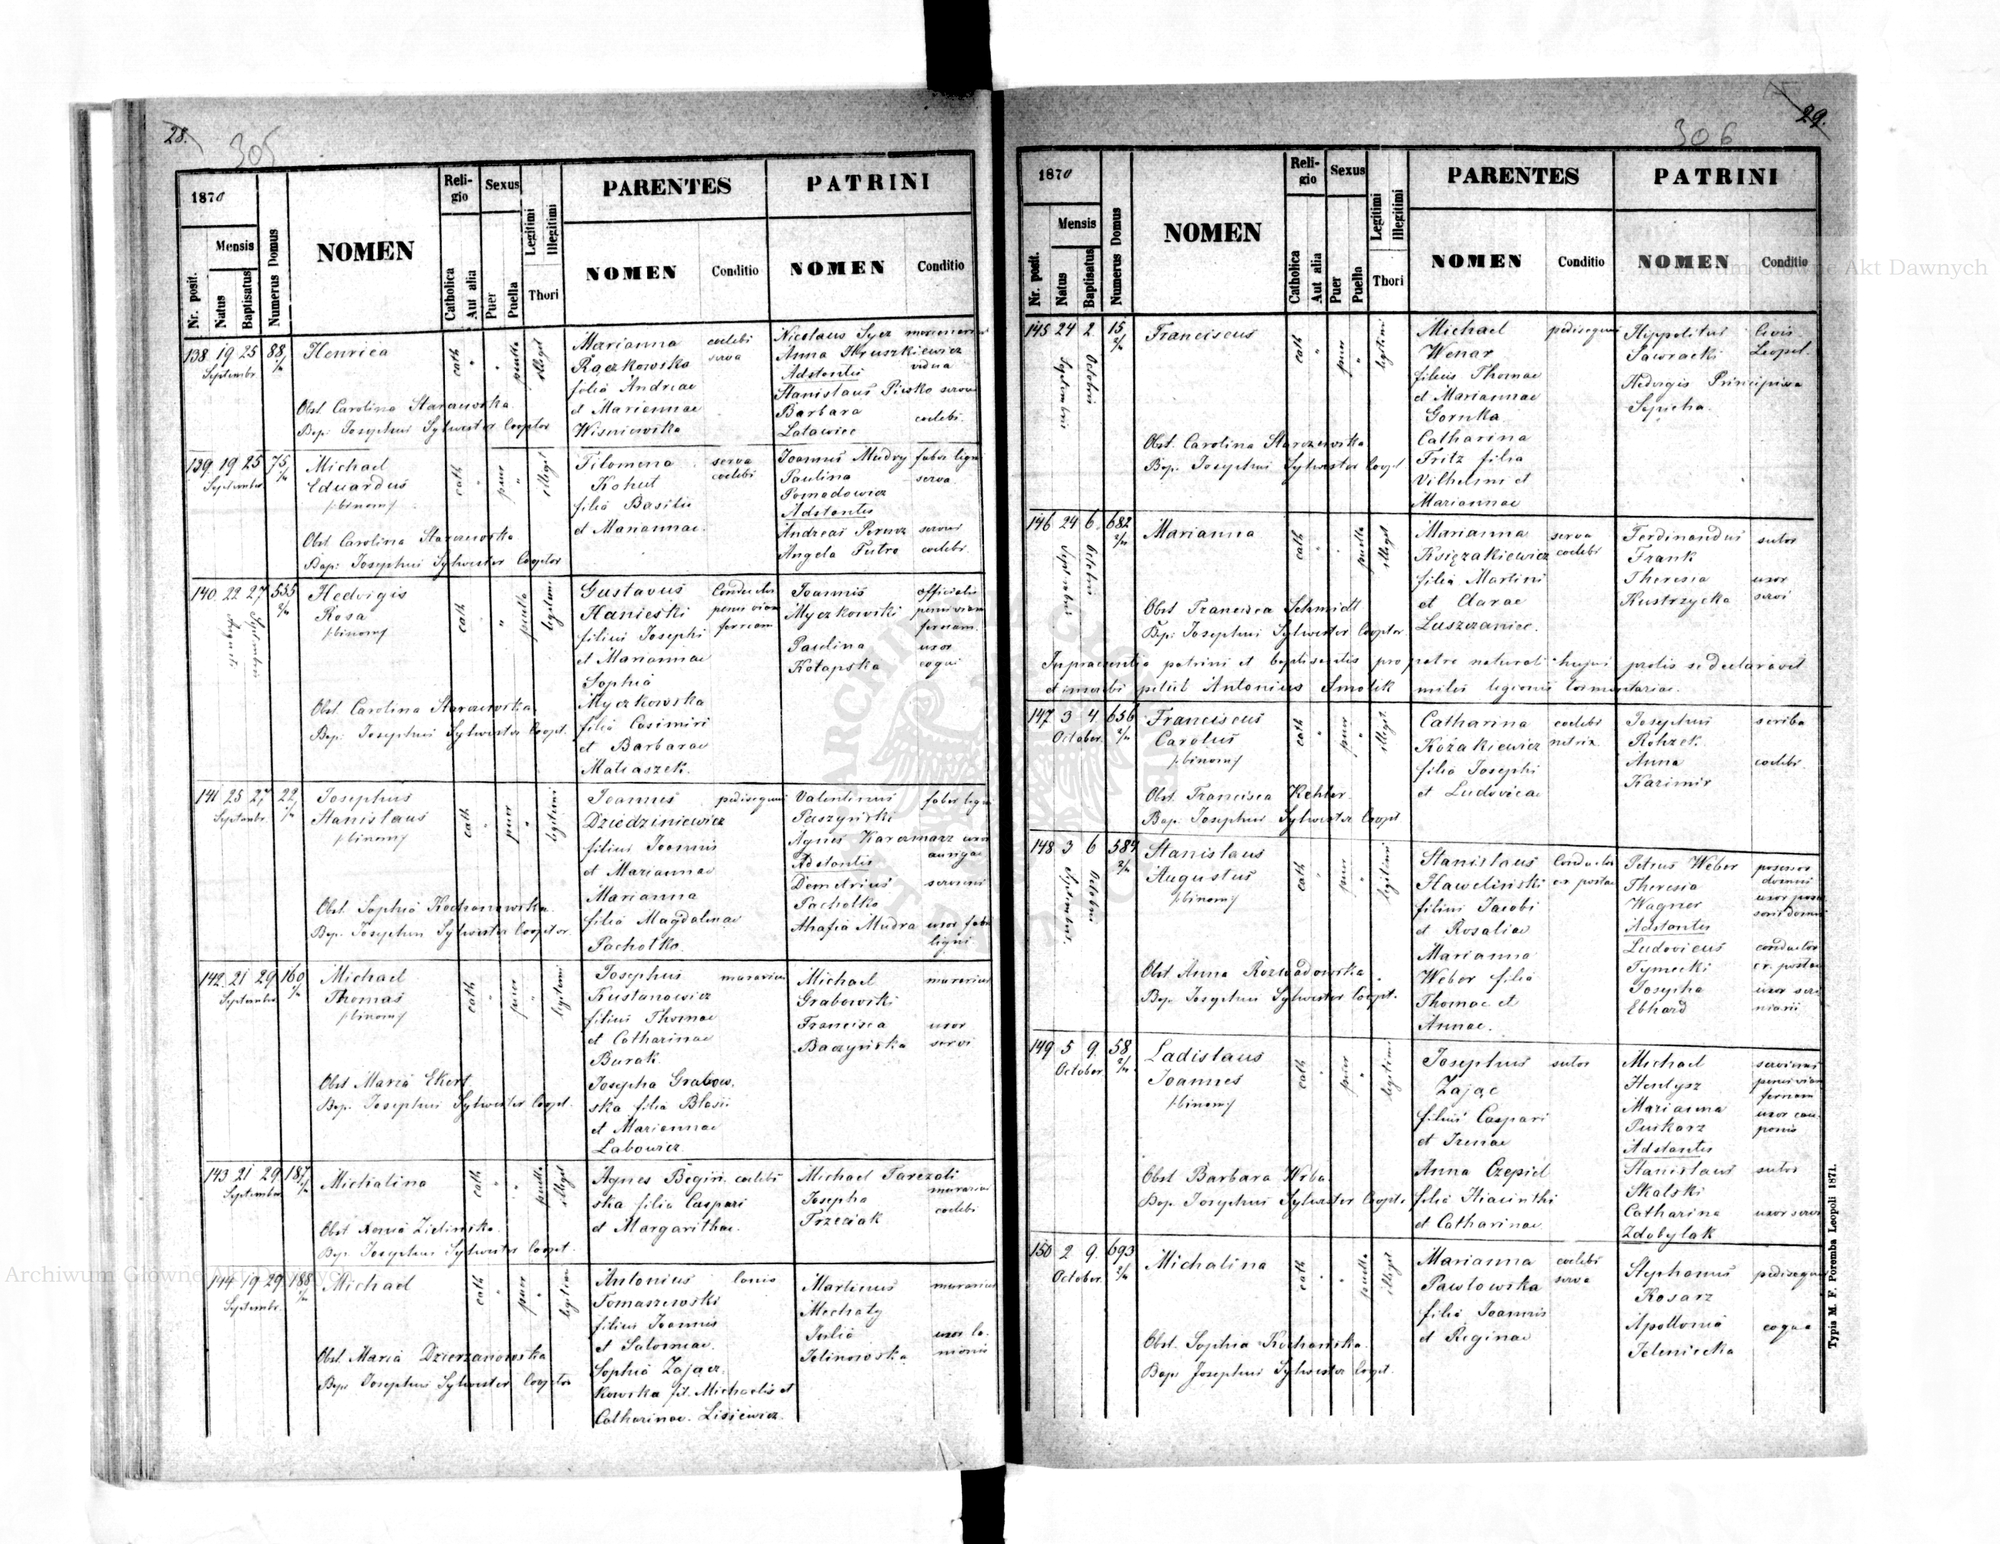 28.
305
1870
Mensis
Nr. posit.
Natus
Baptisatus
Numerus Domus
NOMEN
Religio
Catholica
Aut alia
Sexus
Puer
Puella
Legitimi
Illegitimi
Thori
PARENTES
NOMEN
Conditio
PATRINI
NOMEN
Conditio
138 19 25 88
Septembr
Henrica
cath
puella
illegit
Obst. Carolina
Bap: Josephus Sylwester Cooptor
Marianna coelebs
Raczkowska serva
filia Andreae
et Mariannae
Wisniewska
Nicolaus
Anna Hruszkiewicz vidua
Adstantes
Stanislaus
Barbara coelebs
Latawiec
139 19 25 75
September
Michael
Eduardus
/:binom:/
cath
puer
illegit
Obst. Carolina
Bap: Josephus Sylwester Cooptor
Filomena serva
Kohut coelebs
filia Basilii
et Mariannae
Joannes Mudry faber ligni
Paulina serva
Pomadowicz
Adstantes
Andreas
Angela Futro coelebs
140 22 27 535
Hedvigis
Rosa
/:binom:/
cath
puella
legitimi
Obst. Carolina
Bap: Josephus Sylwester Coopt.
Gustavus Conductor
Hanieski penes viam
filius Josephi ferream
et Mariannae
Sophia
Myczkowska
filia Casimiri
et Barbarae
Mataszek.
Joannes officialis
Myczkowski penes viam
ferream.
Paulina uxor
Kotapska coqui
141 25 27 22
Septembr
Josephus
Stanislaus
/:binom:/
cath
puer
legitimi
Obst. Sophia Kochanowska
Bap: Josephus Sylwester Cooptor
Joannes pedisequus
Dziedziniewicz
filius Joannis
et Mariannae
Marianna
filia Magdalenae
Pachotka.
Valentinus faber ligni
Paszyński
Agnes Karczmarz uxor
Adstantes aurigae
Demetrius
Pachotko
Ahafia Mudra uxor fabri
ligni
142 21 29 160
September
Michael
Thomas
/:binom:/
cath
puer
legitimi
Obst Maria Ekert
Bap: Josephus Sylwester Coopt.
Josephus murarius
Kustanowicz
filius Thomae
et Catharinae
Burak.
Josepha Grabow
ska filia Blasii
et Mariannae
Labowicz.
Michael murarius
Grabowski
Francisca uxor
Baczyńska servi
143 21 29 187
September
Michalina
cath
puella
illegit
Obst
Bap. Josephus Sylwester Coopt.
Agnes Begiń coelebs
ska filia Caspari
et Margarithae.
Michael
murarius
Josepha coelebs
Trzeciak
144 19 29 188
Septembr.
Michael
cath
puer
legitimi
Obst. Maria Dzierzanowska
Bap: Josephus Sylwester Cooptor
Antonius lanio
Tomaszewski
filius Joannis
et Salomeae.
Sophia Zajacz
kowska fil. Michaelis et
Catharinae Lisiewicz.
Martinus murarius
Mechaty
Julia uxor la
nionis
29.
306
1870
Mensis
Nr. posit.
Natus
Baptisatus
Numerus Domus
NOMEN
Religio
Catholica
Aut alia
Sexus
Puer
Puella
Legitimi
Illegitimi
Thori
PARENTES
NOMEN
Conditio
PATRINI
NOMEN
Conditio
145 24 2 15
Septembris
Octobris
Franciscus
cath
puer
legitimi
Obst. Carolina Starczewska
Bap: Josephus Sylwester Coopt
Michael pedisequus
Wenar
filius Thomae
et Mariannae
Gornka
Catharina
Fritz filia
Vilhelmi et
Mariannae
Hippolitus Civis
Jaworacki Leopol.
Hedvigis Principissa
Sapieha.
146 24 6. 682
Septembris
Octobris
Marianna
cath
puella
illegit
Obst Francisca Schmidt
Bap: Josephus Sylwester Cooptor
Marianna serva
Księzakiewicz coelebs
filia Martini
et Clarae
Luszczaniec.
Ferdinandus sutor
Frank
Theresia uxor
Kustrzycka servi
In praesentia patrini et baptisantis pro patre naturali hujus prolis se declaravit
et inscribi petiit Antonius Smolik miles legionis tormentariae.
147 3 4 656
October.
Franciscus
Carolus
/:binom:/
cath
puer
illegit.
Obst. Francisca Kehler
Bap: Josephus Sylwester Coopt
Catharina coelebs
Kożakiewicz
filia Josephi
et Ludovicae
Josephus scriba
Rohzek.
Anna coelebs
Kazimir
148 3 6 584
Octobris
Stanislaus
Augustus
/:binom:/
cath
puer
legitimi
Obst Anna Rozwadowska
Bap: Josephus Sylwester Coopt.
Stanislaus Conductor
Haweliński
filius Jacobi
et Rosaliae
Marianna
Weber filia
Thomae et
Annae.
Petrus Weber
Theresia
Wagner
Adstantes
Ludovicus conductor
Tymecki
Josepha
Ebhard
149 5 9. 58
October
Ladislaus
Joannes
/:binom:/
cath
puer
legitimi
Obst Barbara Wrba
Bap: Josephus Sylwester Coopt.
Josephus sutor
Zając
filius Caspari
et Irenae
Anna Czepiel
filia Hiacinthi
et Catharinae
Michael
Henlysz penes viam
ferream
Marianna uxor cau
Puskarz ponis
Adstantes
Stanislaus sutor
Skalski
Catharina uxor servi
Zdobylak
150 2 9. 693
October.
Michalina
cath
puella
illegit
Obst. Sophia Kochanska.
Bap Josephus Sylwester Coopt.
Marianna coelebs
Pawłowska serva
filia Joannis
et Reginae
Stephanus pedisequus
Kosarz
Apollonia coqua
Jeleniecka
Typis M. F. Poremba Leopoli 1871.
Archiwum Główne Akt Dawnych
Archiwum Główne Akt Dawnych